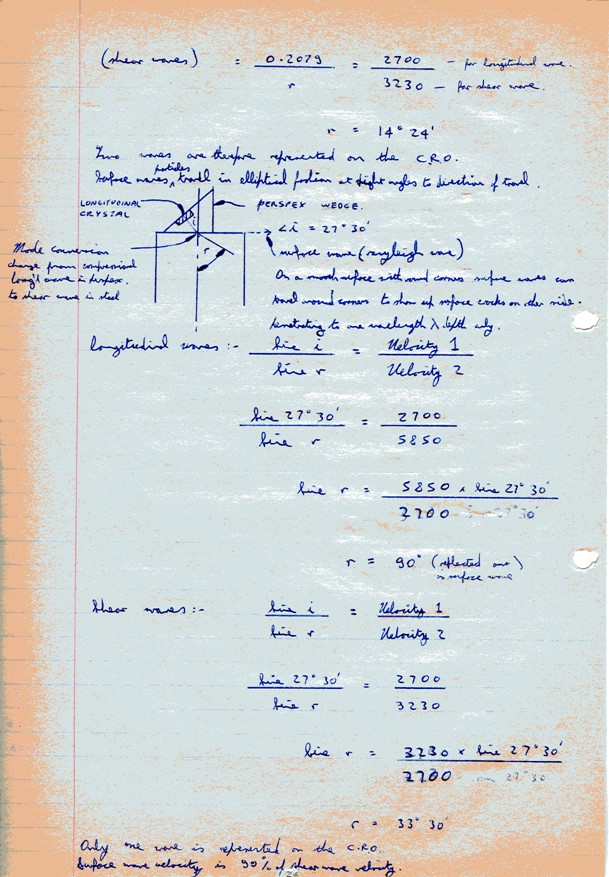 (shear waves) = 0.2079 / r = 2700 - for longitudinal wave. / 3230 - for shear wave.
r = 14° 24'
Two waves are therefore represented on the C.R.O.
Surface waves, particles travel in elliptical fashion at right angles to direction of travel.
LONGITUDINAL CRYSTAL
PERSPEX WEDGE.
∠i = 27° 30'
i
r
Mode conversion
change from compressional
long'l wave in perspex.
to shear wave in steel
surface wave (rayleigh wave)
On a smooth surface with round corners surface waves can
travel round corners to show up surface cracks on other side.
penetrating to one wavelength λ depth only.
Longitudinal waves :- Sine i / Sine r = Velocity 1 / Velocity 2
Sine 27° 30' / Sine r = 2700 / 5850
Sine r = 5850 x Sine 27° 30' / 2700
r = 90° (reflected out)
is surface wave
Shear waves :- Sine i / Sine r = Velocity 1 / Velocity 2
Sine 27° 30' / Sine r = 2700 / 3230
Sine r = 3230 x Sine 27° 30' / 2700
r = 33° 30'
Only one wave is represented on the C.R.O.
Surface wave velocity is 90% of shear wave velocity.